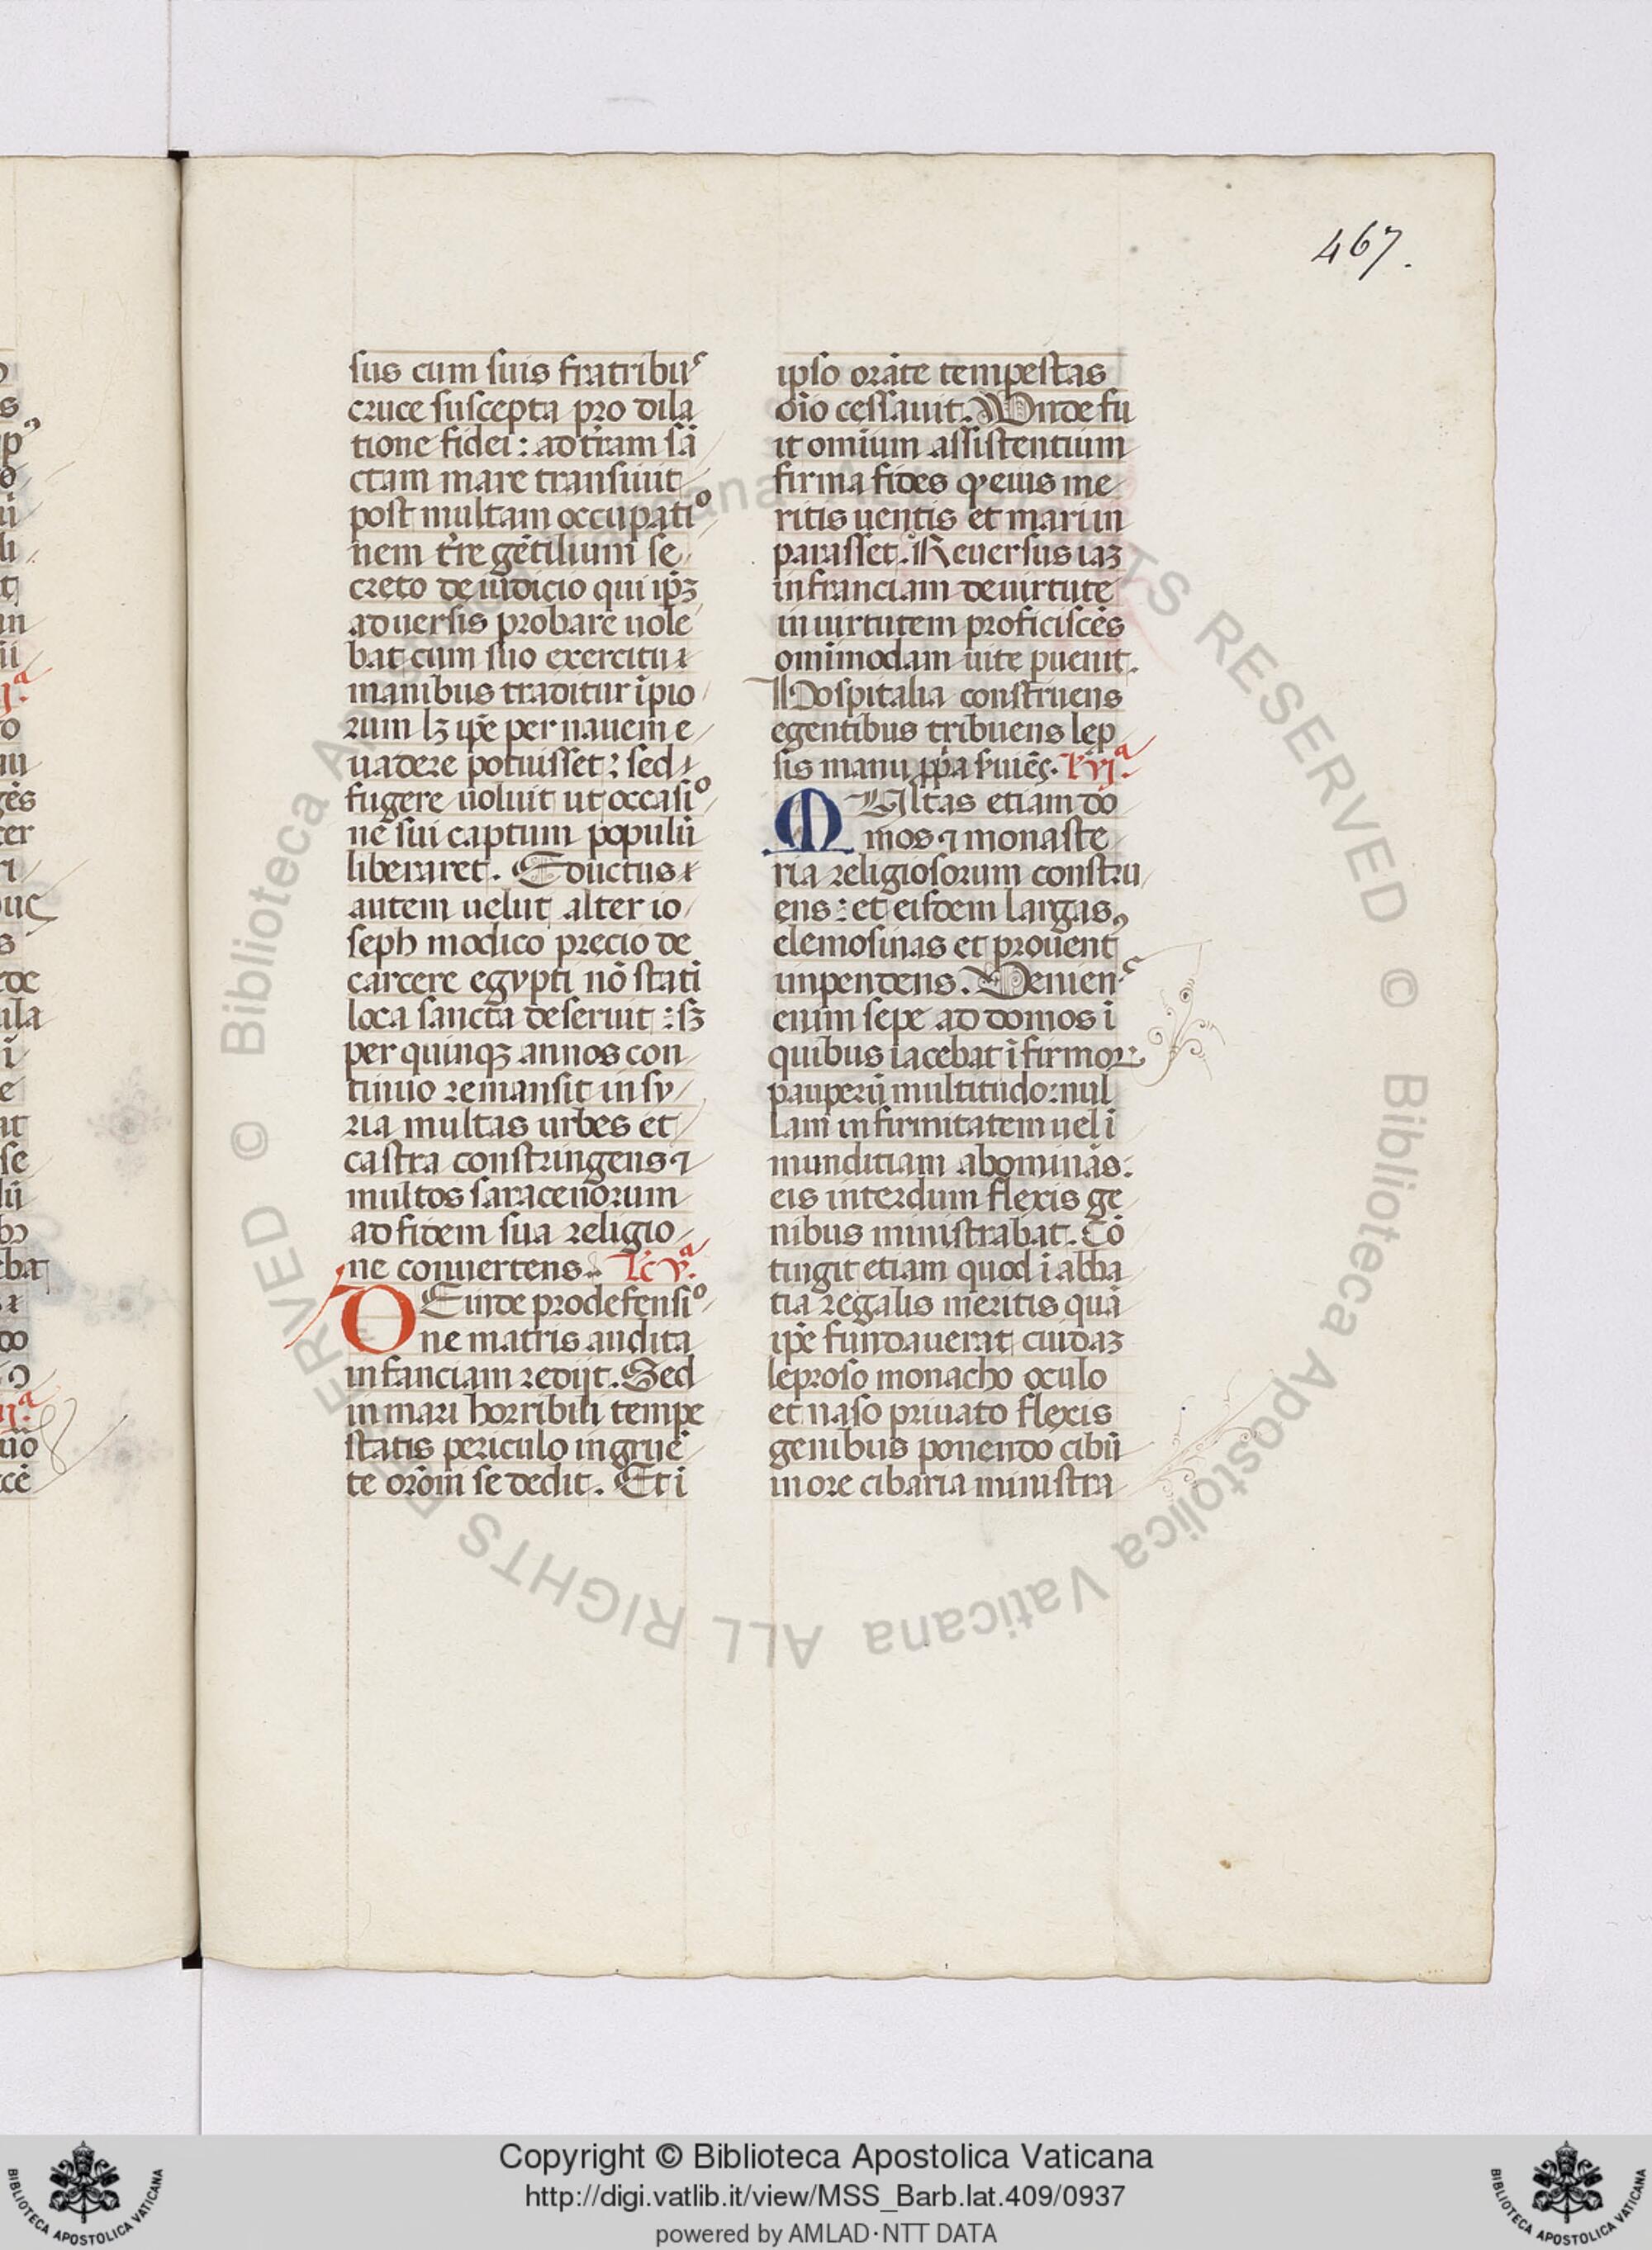 467.
sus cum suis fratribuˢ
cruce suscepta pro dila
tione fidei: ad t̄ram sā
ctam mare transiuit
post multam occupatiᵒ
nem t̄re gētilium se
creto dei iudicio qui ip̄ꝫ
aduersis probare uole
bat cum suo exercitu
manibus traditur īpio
rum lꝫ ip̄e per nauem e
uadere potuisset: sed
fugere uoluit ut occasiᵒ
ne sui captum populū
liberaret. Eductus
autem uelut alter io
seph modico precio de
carcere egypti nō statī
loca sancta deseruit: sꝫ
per quinqꝫ annos con
tinuo remansit in sy
ria multas urbes et
castra constringens ⁊
multos saracenorum
ad fidem sua religio
ne conuertens. Lc̄ v.ᵃ
DEinde pro defensiᵒ
ne matris audita
in fanciam redijt. Sed
in mari horribili tempe
statis periculo ingruē
te orōni se dedit. Et ī
ipso orāte tempestas
oīo cessauit. Vnde fu
it omīum assistentium
firma fides ꝙ eius me
ritis uentis et mari im
parasset. Reuersus iaꝫ
in franciam de uirtute
in uirtutem proficiscēs
omīmodam uite puenit.
Hospitalia construens
egentibus tribuens lep
sis manu ꝓpa s̄uiēs. L̄ vj.ᵃ
MUltas etiam do
mos ⁊ monaste
ria religiosorum constru
ens: et eisdem largas
elemosinas et prouentꝰ
impendens. Venienˢ
enim sepe ad domos ī
quibus iacebat īfirmoꝝ
pauperū multitudo: nul
lam infirmitatem uel ī
munditiam abominās:
eis interdum flexis ge
nibus ministrabat. Cō
tingit etiam quod ī abba
tia regalis meritis quā
ip̄e fundauerat cuidaꝫ
leproso monacho oculo
et naso priuato flexis
genibus ponendo cibū
in ore cibaria ministra
Copyright © Biblioteca Apostolica Vaticana
http://digi.vatlib.it/view/MSS_Barb.lat.409/0937
powered by AMLAD·NTT DATA